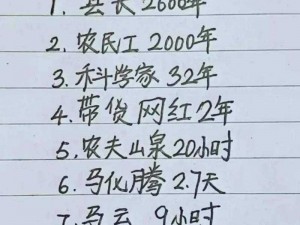 1. 县长2600年
2. 农民工2000年
3. 科学家32年
4. 带货网红2年
5. 农夫山泉20小时
6. 马化腾2.7天
7. 马云 9小时